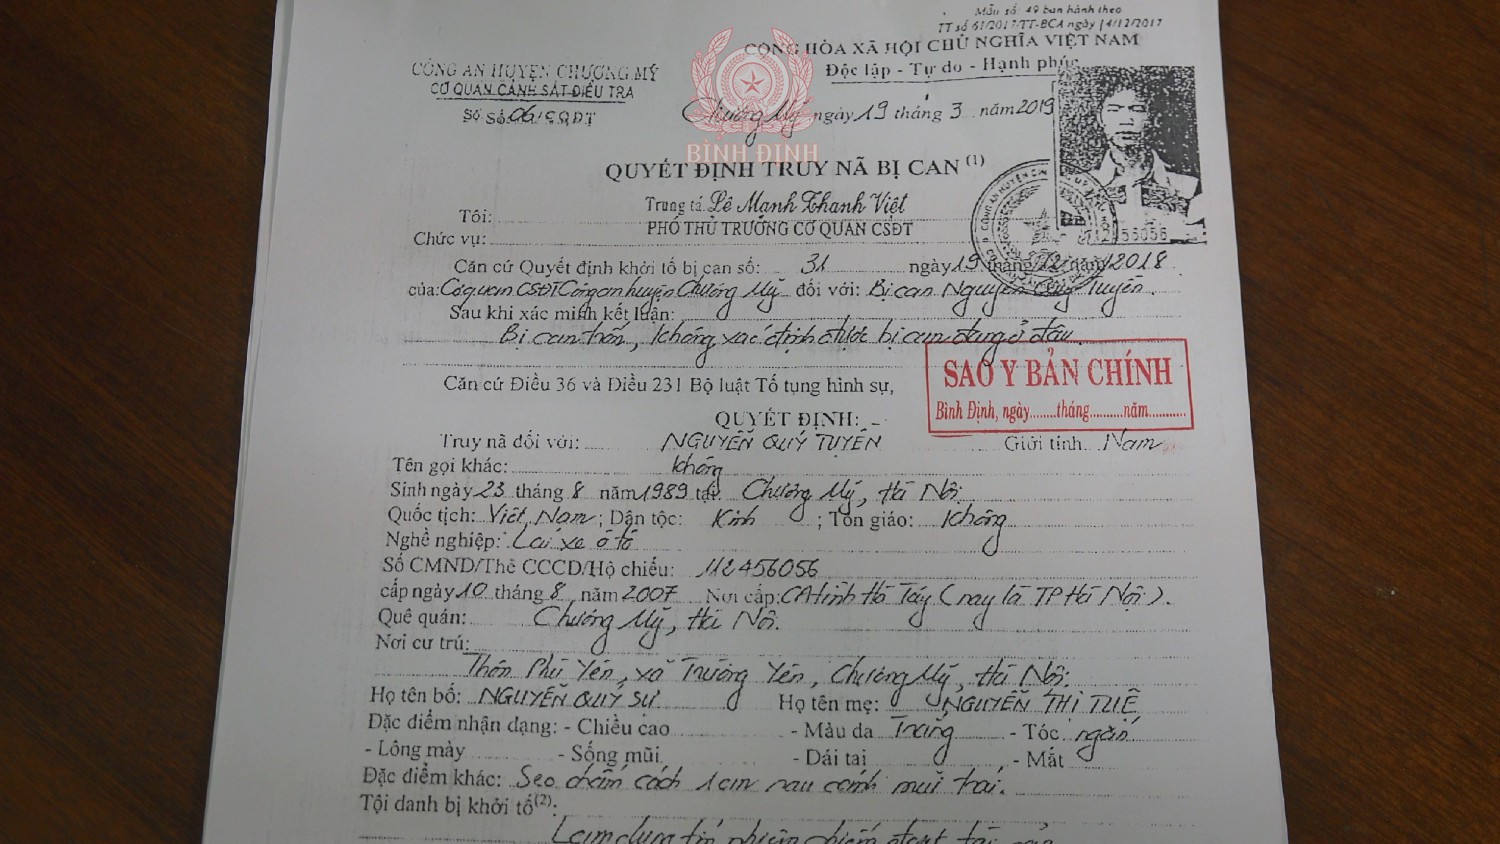 Mẫu số: 49 ban hành theo
TT số 61/2017/TT-BCA ngày 14/12/2017
CỘNG HÒA XÃ HỘI CHỦ NGHĨA VIỆT NAM
Độc lập - Tự do - Hạnh phúc
CÔNG AN HUYỆN CHƯƠNG MỸ
CƠ QUAN CẢNH SÁT ĐIỀU TRA
Số 06/CQĐT
Chương Mỹ ngày 19 tháng 3 năm 2019
BÌNH ĐỊNH
QUYẾT ĐỊNH TRUY NÃ BỊ CAN (1)
Tôi: Trung tá Lê Mạnh Thanh Việt
Chức vụ: PHÓ THỦ TRƯỞNG CƠ QUAN CSĐT
12456056
Căn cứ Quyết định khởi tố bị can số: 31 ngày 19 tháng 12 năm 2018
của: Cơ quan CSĐT Công an huyện Chương Mỹ đối với: Bị can Nguyễn Quý Tuyên.
Sau khi xác minh kết luận:
Bị can trốn, không xác định được bị can đang ở đâu.
Căn cứ Điều 36 và Điều 231 Bộ luật Tố tụng hình sự,
SAO Y BẢN CHÍNH
Bình Định, ngày........tháng..........năm...........
QUYẾT ĐỊNH:
Truy nã đối với: NGUYỄN QUÝ TUYÊN Giới tính: Nam
Tên gọi khác: Không
Sinh ngày 23 tháng 8 năm 1989 tại: Chương Mỹ, Hà Nội.
Quốc tịch: Việt Nam; Dân tộc: Kinh; Tôn giáo: Không
Nghề nghiệp: Lái xe ô tô
Số CMND/Thẻ CCCD/Hộ chiếu: 112456056
cấp ngày 10 tháng 8 năm 2007 Nơi cấp: CA tỉnh Hà Tây (nay là TP Hà Nội).
Quê quán: Chương Mỹ, Hà Nội.
Nơi cư trú:
Thôn Phù Yên, xã Trường Yên, Chương Mỹ, Hà Nội.
Họ tên bố: NGUYỄN QUÝ SỰ Họ tên mẹ: NGUYỄN THỊ TUỆ
Đặc điểm nhận dạng: - Chiều cao - Màu da Trắng - Tóc ngắn
- Lông mày - Sống mũi - Dái tai - Mắt
Đặc điểm khác: Sẹo chấm cách 1cm sau cánh mũi trái.
Tội danh bị khởi tố(2):
Lạm dụng tín nhiệm chiếm đoạt tài sản